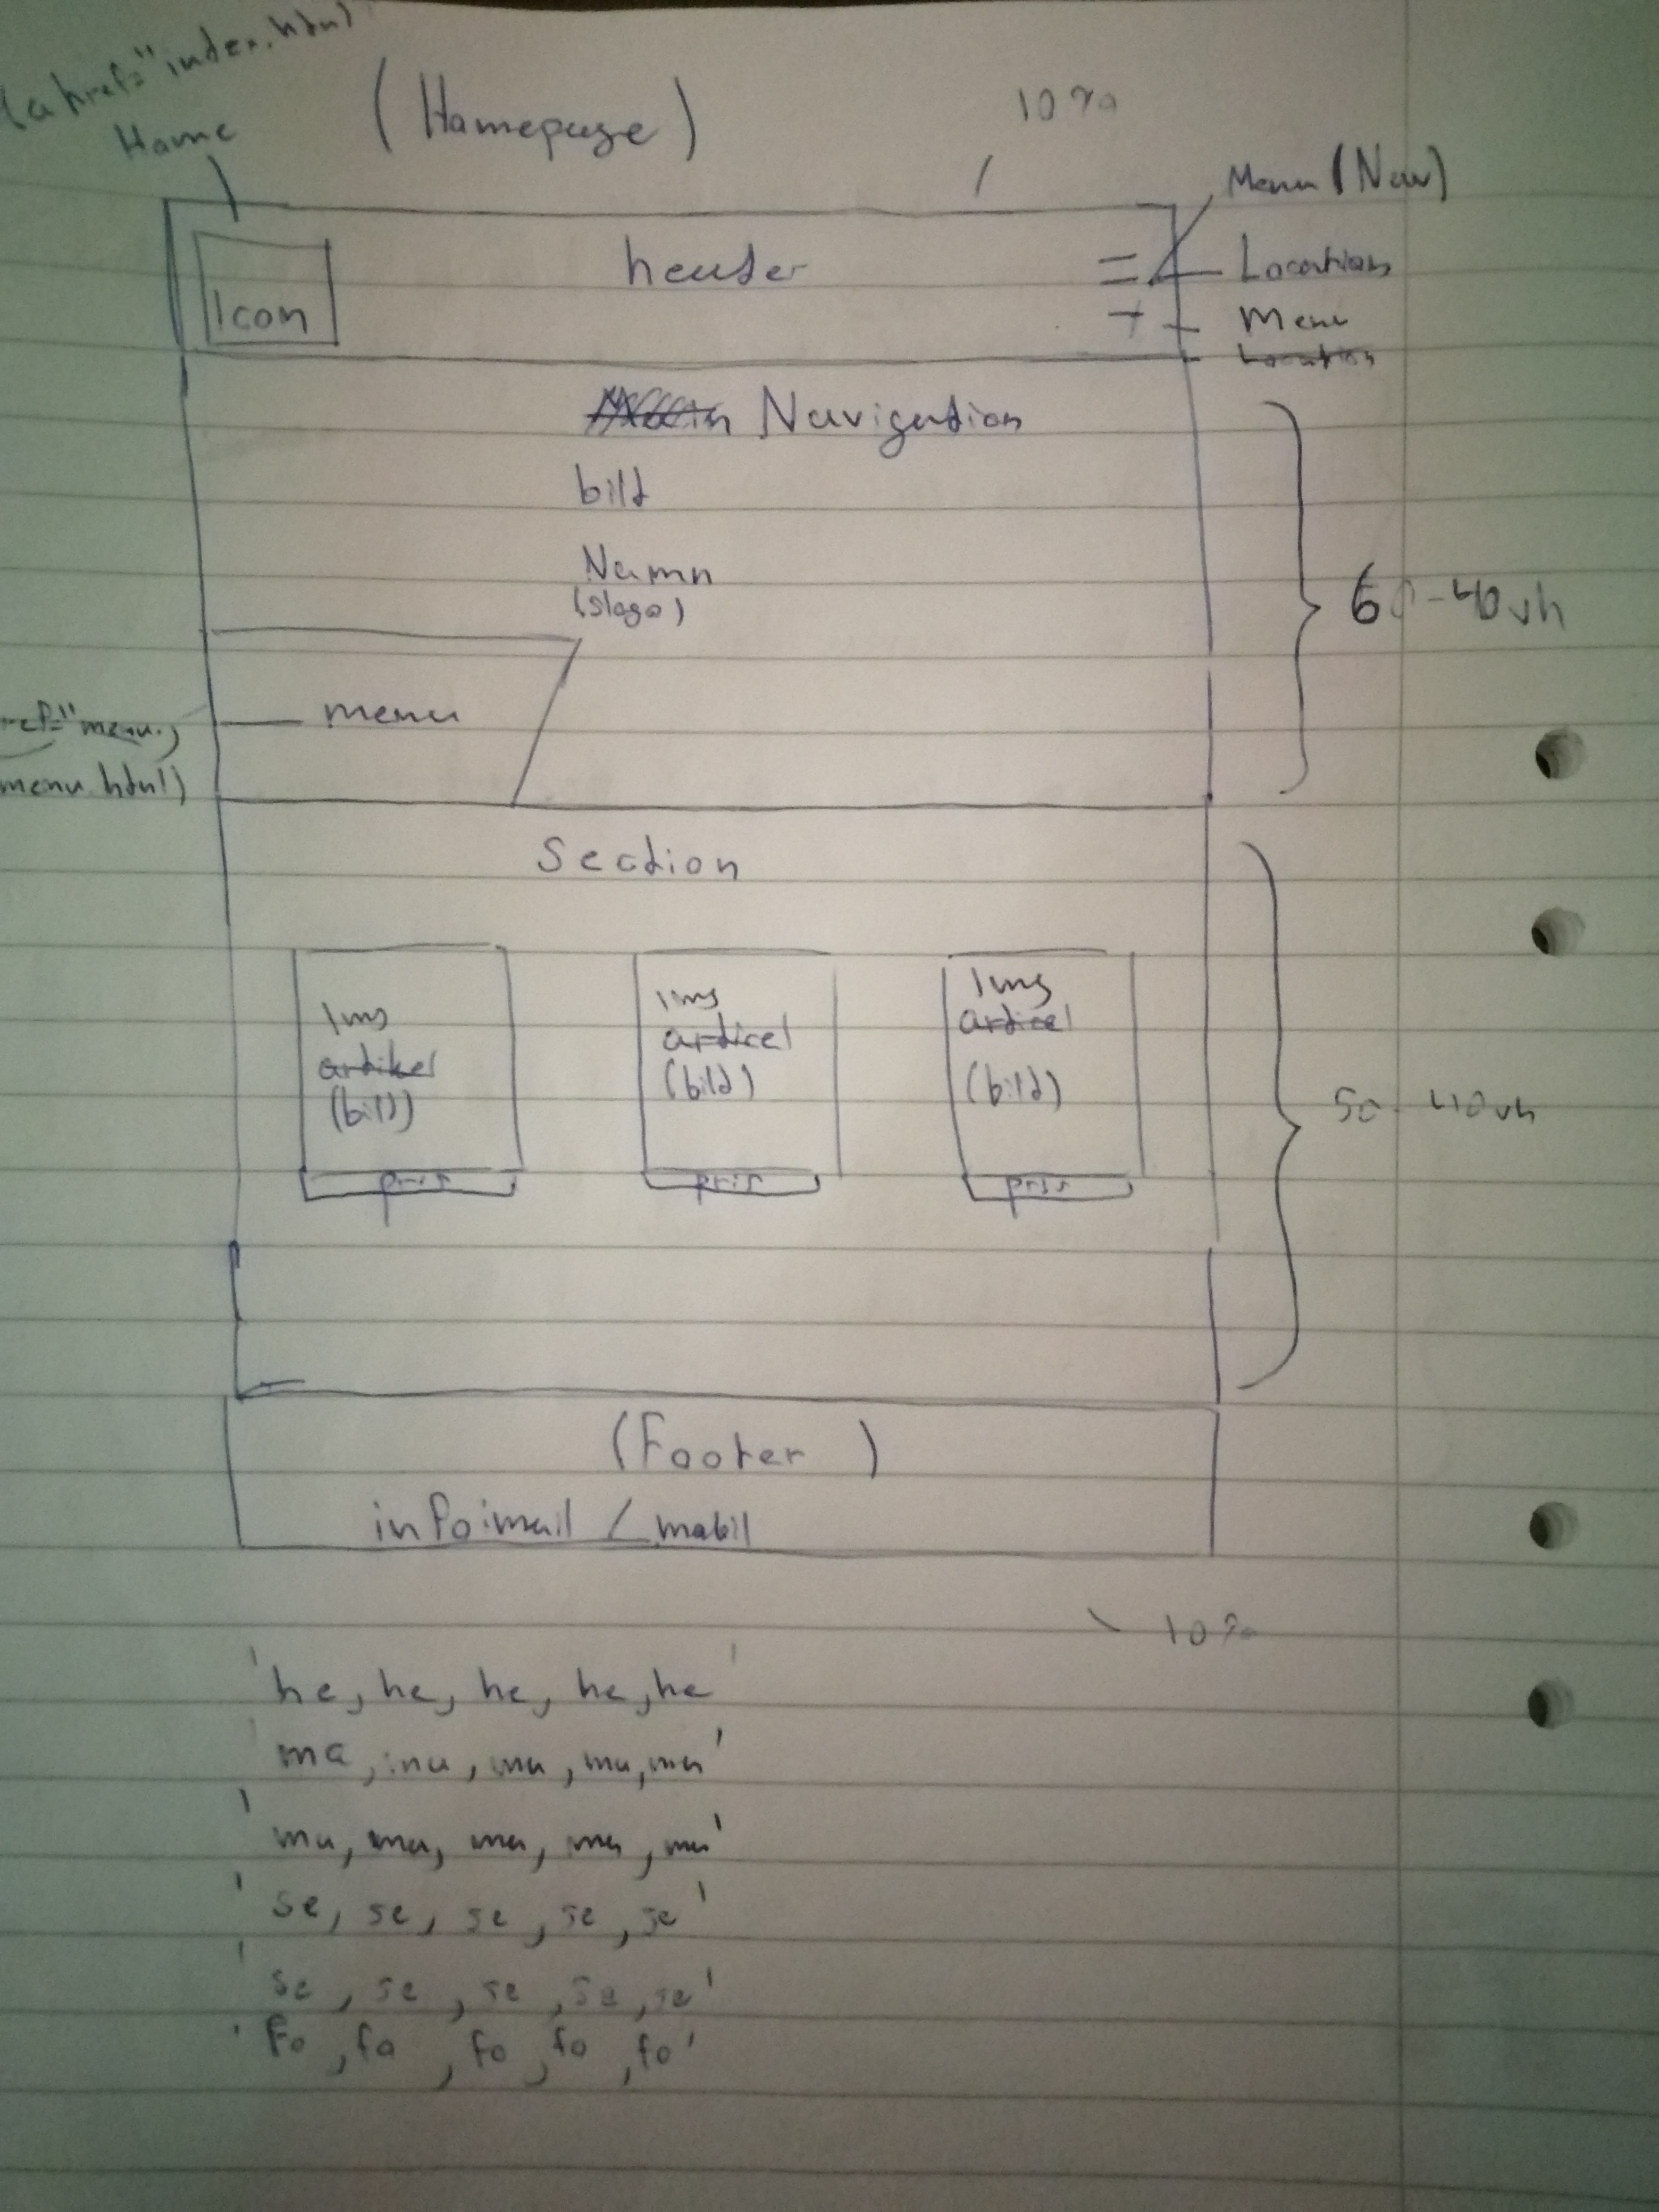 (a href="index.html
Home
(Homepage)
10%
Menu (Nav)
header
Location
Icon
Menu
Location
Navigation
bild
Namn
(slogo)
60-40vh
menu
menu.)
menu.html)
Section
img
artikel
(bild)
img
articel
(bild)
img
articel
(bild)
50-40vh
pris
pris
pris
(Footer )
info:mail / mobil
10%
'he, he, he, he, he'
'ma, ma, ma, ma, ma'
'ma, ma, ma, ma, ma'
'se, se, se, se, se'
'se, se, se, se, se'
'Fo, fo, fo, fo, fo'